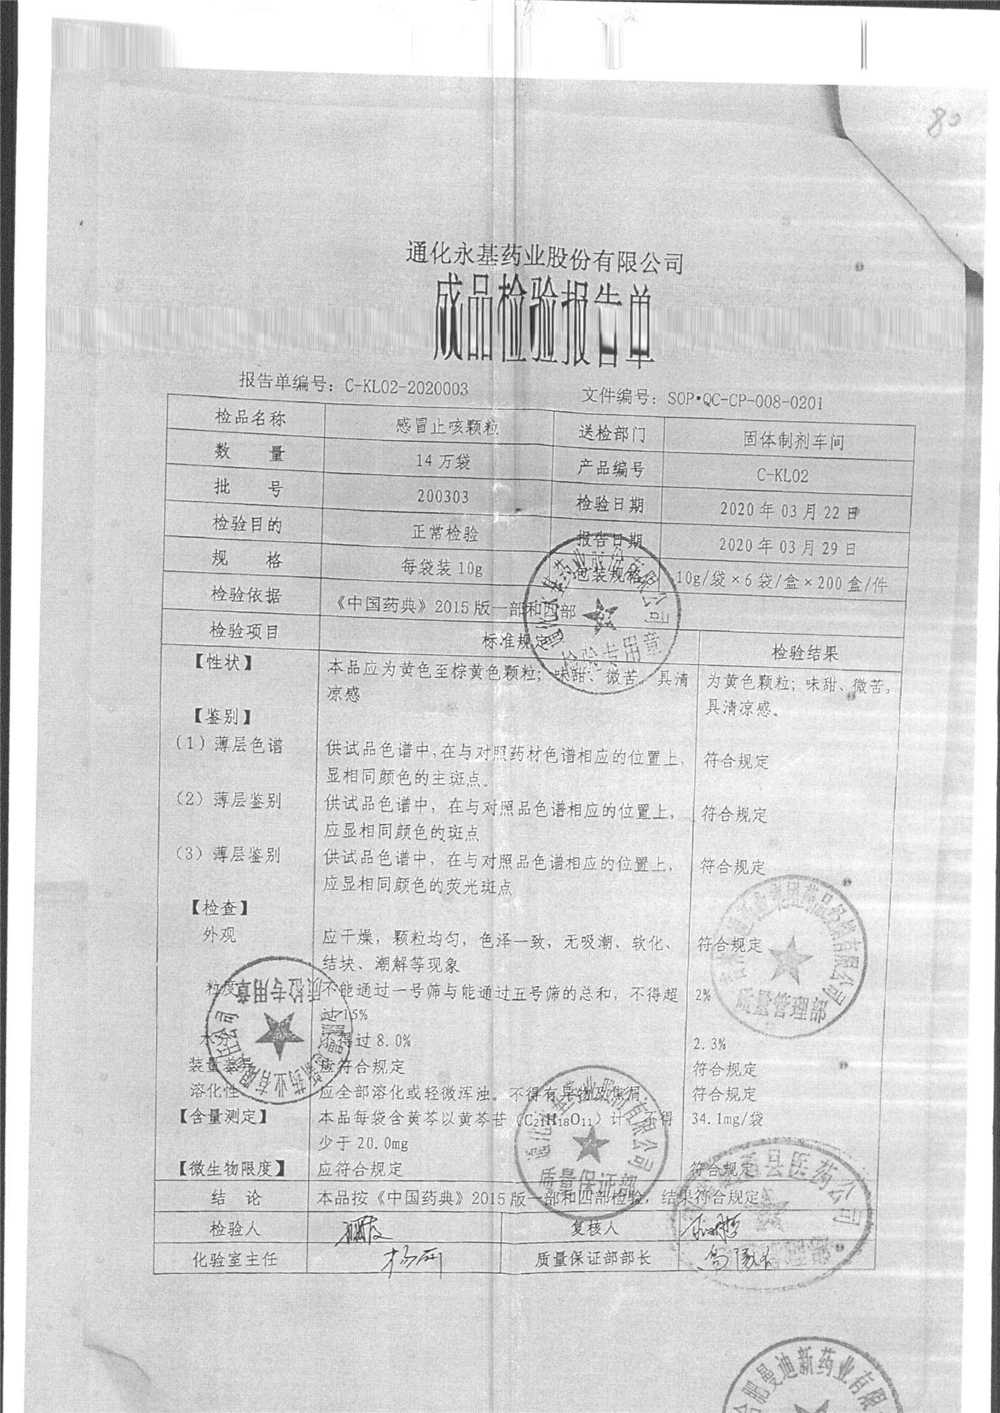 80
通化永基药业股份有限公司
成品检验报告单
报告单编号：C-KL02-2020003 文件编号：SOP•QC-CP-008-0201
检品名称 感冒止咳颗粒 送检部门 固体制剂车间
数 量 14万袋 产品编号 C-KL02
批 号 200303 检验日期 2020年03月22日
检验目的 正常检验 报告日期 2020年03月29日
规 格 每袋装10g 包装规格 10g/袋×6袋/盒×200盒/件
检验依据 《中国药典》2015版一部和四部
检验项目 标准规定 检验结果
【性状】 本品应为黄色至棕黄色颗粒；味甜、微苦，具清 为黄色颗粒；味甜、微苦，
凉感 具清凉感。
【鉴别】
（1）薄层色谱 供试品色谱中,在与对照药材色谱相应的位置上， 符合规定
显相同颜色的主斑点。
（2）薄层鉴别 供试品色谱中，在与对照品色谱相应的位置上， 符合规定
应显相同颜色的斑点
（3）薄层鉴别 供试品色谱中，在与对照品色谱相应的位置上， 符合规定
应显相同颜色的荧光斑点
【检查】
外观 应干燥，颗粒均匀，色泽一致，无吸潮、软化、 符合规定
结块、潮解等现象
粒度 不能通过一号筛与能通过五号筛的总和，不得超 2%
过15%
水 得过8.0% 2.3%
装量差异 应符合规定 符合规定
溶化性 应全部溶化或轻微浑浊。不得有异物及焦屑 符合规定
【含量测定】 本品每袋含黄芩以黄芩苷（C21H18O11）计，不得 34.1mg/袋
少于20.0mg
【微生物限度】 应符合规定 符合规定
结 论 本品按《中国药典》2015版一部和四部检验，结果符合规定
检验人 复核人
化验室主任 质量保证部部长
通化永基药业股份有限公司
检验专用章
质量管理部
质检专用章
通化永基药业股份有限公司
质量保证部
县医药公司
合肥曼迪新药业有限